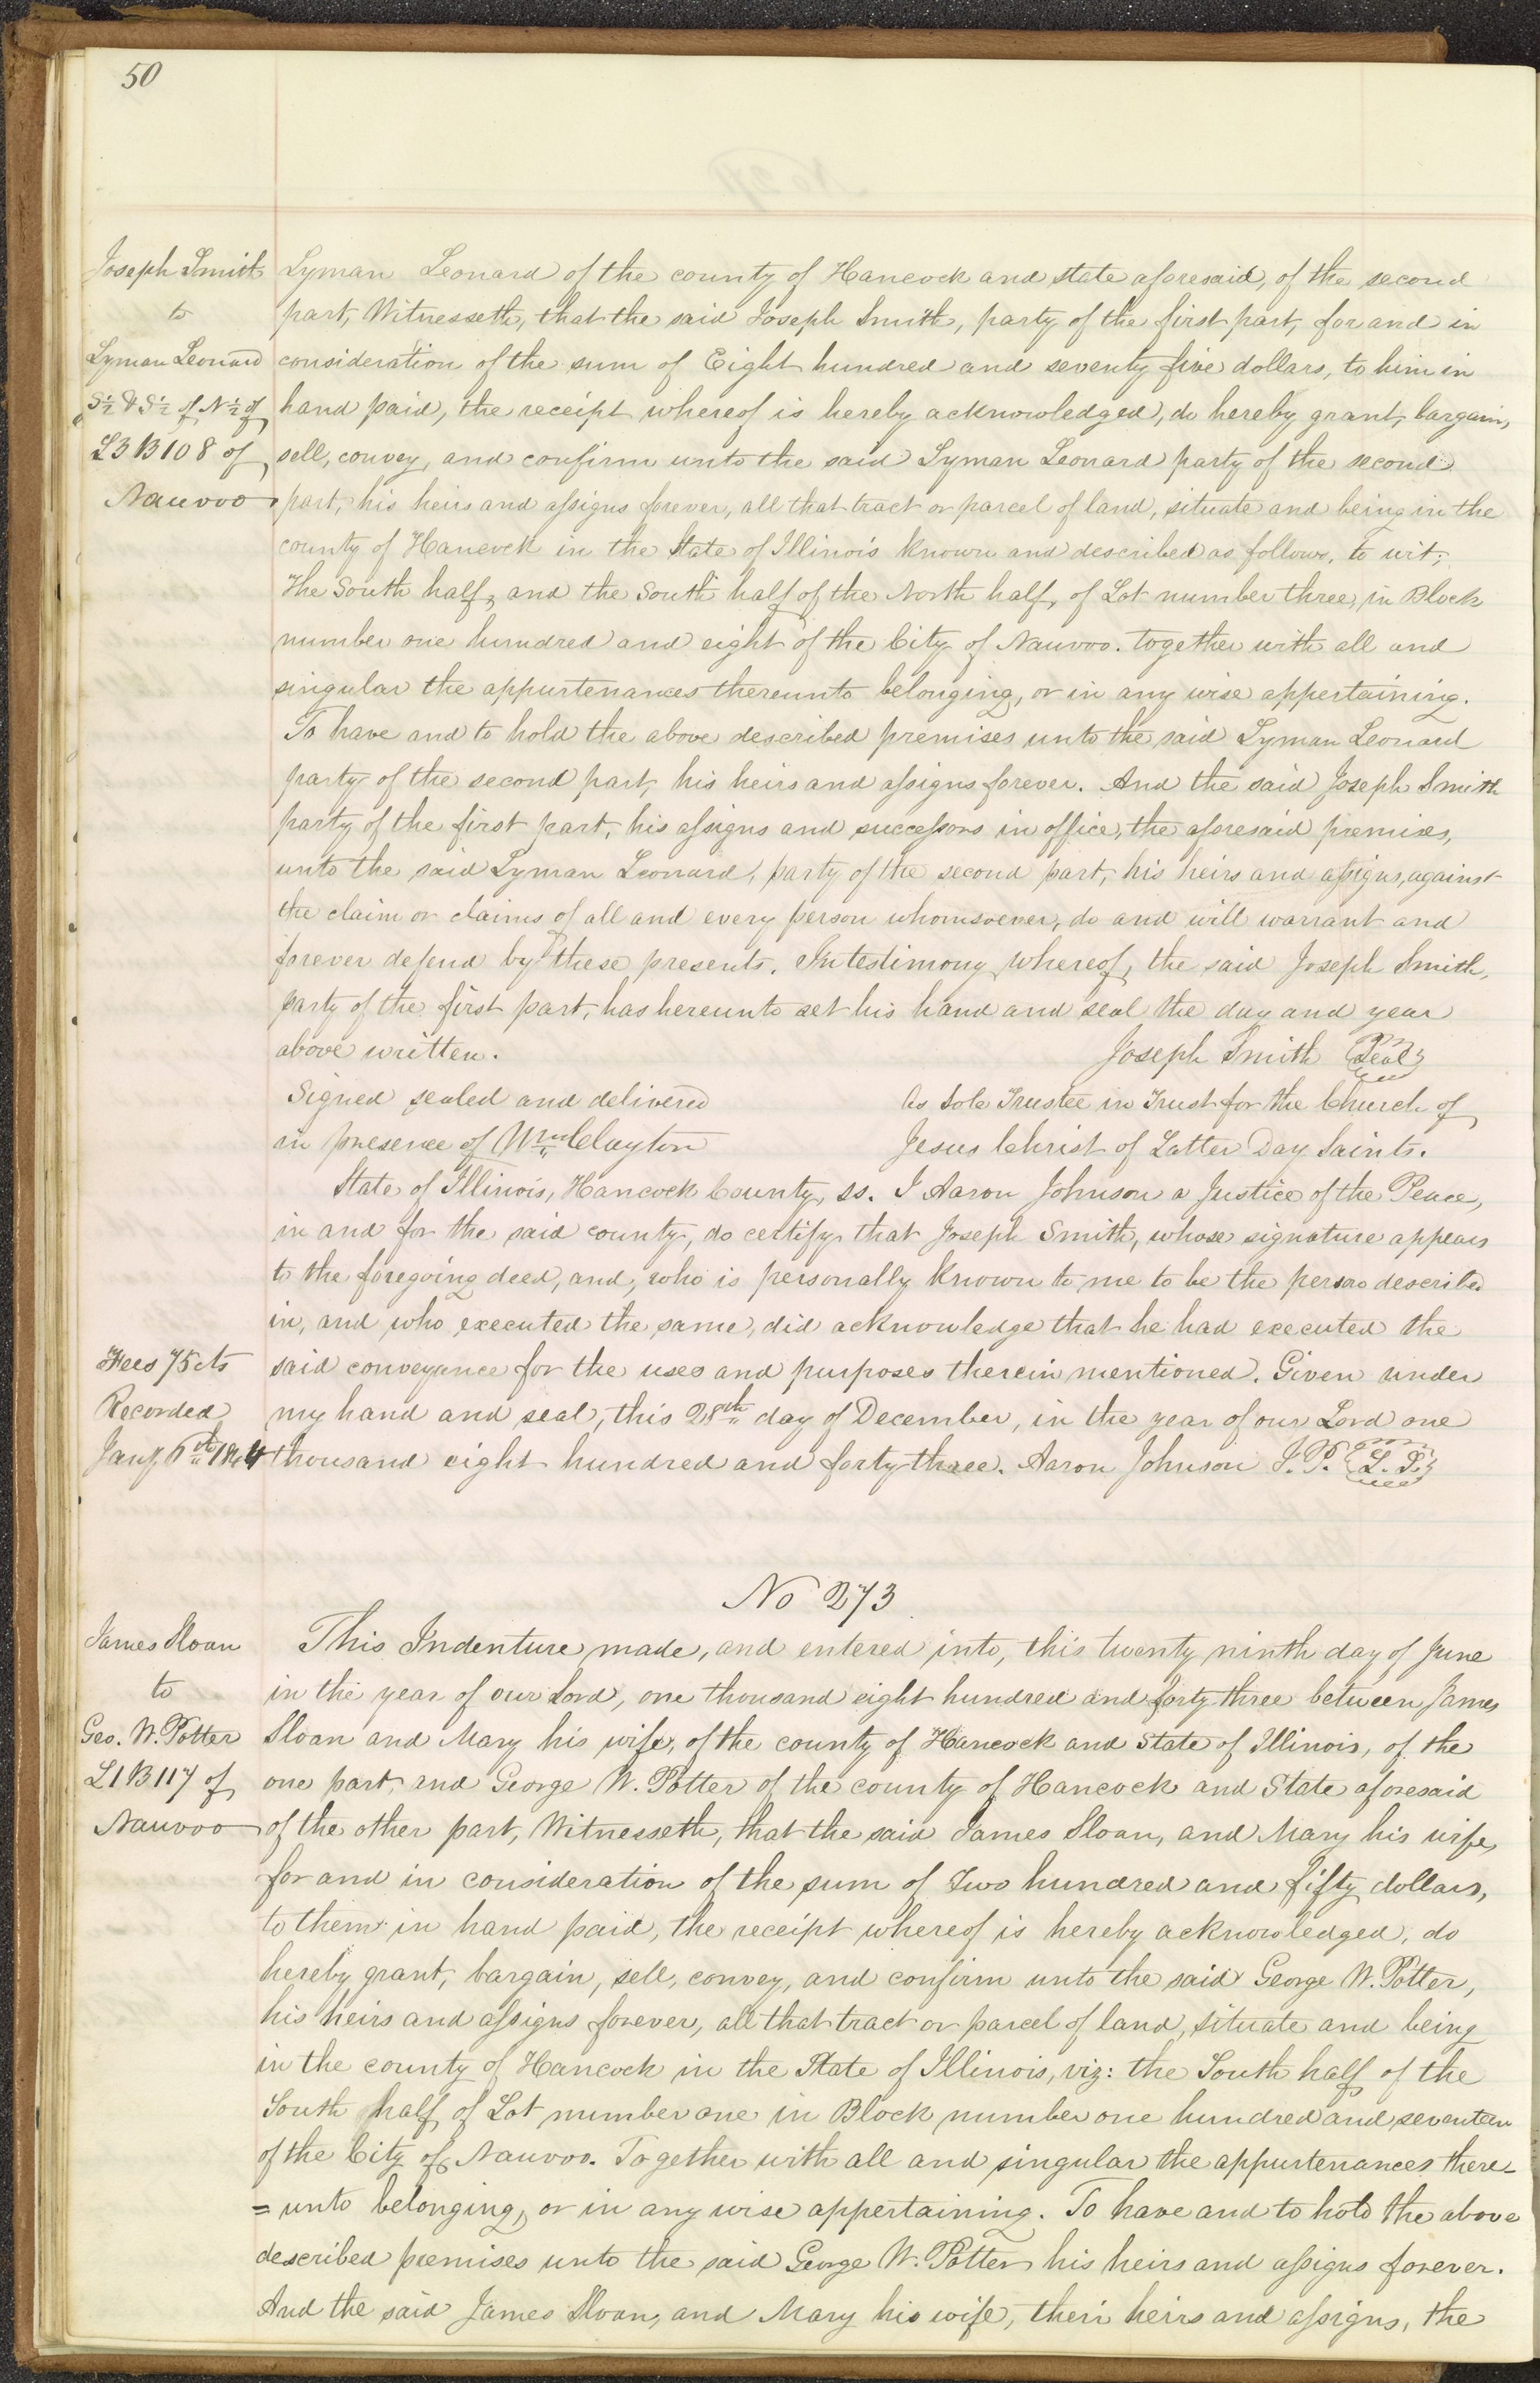 50
Joseph Smith
to
Lyman Leonard
S ½ & S ½ of N ½ of
L 3 B 108 of
Nauvoo
Lyman Leonard of the county of Hancock and state aforesaid, of the second
part, Witnesseth, that the said Joseph Smith, party of the first part, for and in
consideration of the sum of Eight hundred and seventy five dollars, to him in
hand paid, the receipt whereof is hereby acknowledged, do hereby grant, bargain,
sell, convey, and confirm unto the said Lyman Leonard party of the second
part, his heirs and assigns forever, all that tract or parcel of land, situate and being in the
county of Hancock in the State of Illinois known and described as follows, to wit;
The South half, and the South half of the North half, of Lot number three, in Block
number one hundred and eight of the City of Nauvoo. together with all and
singular the appurtenances thereunto belonging, or in any wise appertaining.
To have and to hold the above described premises unto the said Lyman Leonard
party of the second part, his heirs and assigns forever. And the said Joseph Smith
party of the first part, his assigns and successors in office, the aforesaid premises,
unto the said Lyman Leonard, party of the second part, his heirs and assigns, against
the claim or claims of all and every person whomsoever, do and will warrant and
forever defend by these presents. In testimony whereof, the said Joseph Smith,
party of the first part, has hereunto set his hand and seal the day and year
above written. Joseph Smith Seal
Signed sealed and delivered As Sole Trustee in Trust for the Church of
in presence of Wm Clayton Jesus Christ of Latter Day Saints.
State of Illinois, Hancock County, ss. I Aaron Johnson a Justice of the Peace,
in and for the said county, do certify that Joseph Smith, whose signature appears
to the foregoing deed, and, who is personally known to me to be the person described
in, and who executed the same, did acknowledge that he had executed the
said conveyance for the uses and purposes therein mentioned. Given under
my hand and seal, this 28th day of December, in the year of our Lord one
thousand eight hundred and forty three. Aaron Johnson J. P. L. S.
Fees 75 cts
Recorded
Jany 6th 1844
No 273
James Sloan
to
Geo. W. Potter
L 1 B 117 of
Nauvoo
This Indenture made, and entered into, this twenty ninth day of June
in the year of our Lord, one thousand eight hundred and forty three between James
Sloan and Mary his wife, of the county of Hancock and State of Illinois, of the
one part, and George W. Potter of the county of Hancock and State aforesaid
of the other part, Witnesseth, that the said James Sloan, and Mary his wife,
for and in consideration of the sum of Two hundred and fifty dollars,
to them in hand paid, the receipt whereof is hereby acknowledged, do
hereby grant, bargain, sell, convey, and confirm unto the said George W. Potter,
his heirs and assigns forever, all that tract or parcel of land, situate and being
in the county of Hancock in the State of Illinois, viz: the South half of the
South half of Lot number one in Block number one hundred and seventeen
of the City of Nauvoo. Together with all and singular the appurtenances there-
= unto belonging, or in any wise appertaining. To have and to hold the above
described premises unto the said George W. Potter his heirs and assigns forever.
And the said James Sloan, and Mary his wife, their heirs and assigns, the